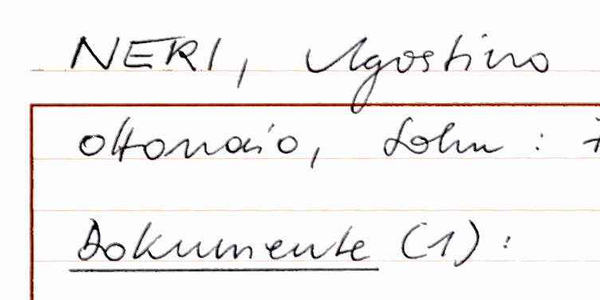 NERI, Agostino
ottonaio, Sohn :
Dokumente (1) :